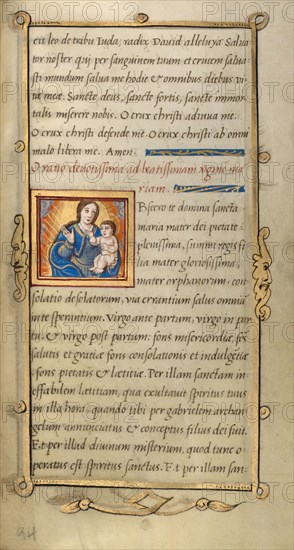 cit leo de tribu Iuda, radix David alleluya Salua
tor noster qui per sanguinem tuum et crucem salua
sti mundum salua me hodie & omnibus diebus vi
tae meae. Sancte deus, sancte fortis, sancte immor
talis miserere nobis. O crux christi adiuua me.
O crux christi defende me. O crux christi ab omni
malo libera me. Amen.
Oratio deuotissima ad beatissimam virginē ma
riam.
Bsecro te domina sancta
maria mater dei pietate
plenissima, summi regis fi
lia mater gloriosissima,
mater orphanorum, con
solatio desolatorum, via errantium salus omniū
in te sperantium. Virgo ante partum, virgo in par
tu, & virgo post partum: fons misericordiæ, fōs
salutis et gratiæ fons consolationis et indulgētiæ
fons pietatis & lætitiæ. Per illam sanctam in
effabilem lætitiam, qua exultauit spiritus tuus
in illa hora, quando tibi per gabrielem archan
gelum annunciatus & conceptus filius dei fuit.
Et per illud diuinum misterium, quod tunc o
peratus est spiritus sanctus. Et per illam san-
94